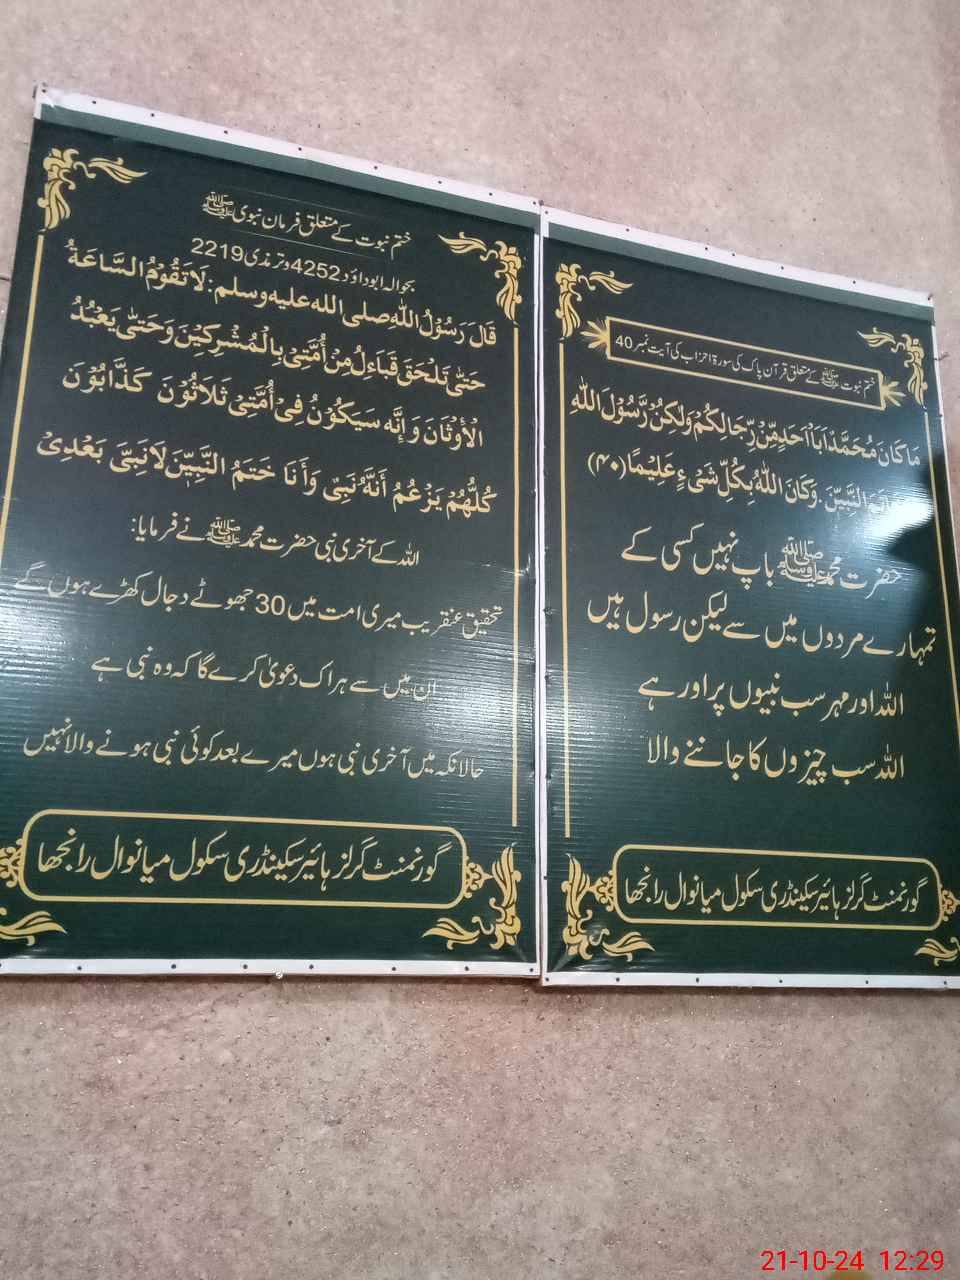 ختم نبوت ﷺ کے متعلق قرآن پاک کی سورۃ احزاب کی آیت نمبر 40
مَا كَانَ مُحَمَّدٌ اَبَاۤ اَحَدٍ مِّنْ رِّجَالِكُمْ وَلٰكِنْ رَّسُوْلَ اللّٰهِ
النَّبِيّٖنَ. وَكَانَ اللّٰهُ بِكُلِّ شَيْءٍ عَلِيْمًا (۴۰)
حضرت محمد ﷺ باپ نہیں کسی کے
تمہارے مردوں میں سے لیکن رسول ہیں
اللہ اور مہر سب نبیوں پر اور ہے
اللہ سب چیزوں کا جاننے والا
گورنمنٹ گرلز ہائیر سکینڈری سکول میانوال رانجھا
ختم نبوت کے متعلق فرمان نبوی ﷺ
بحوالہ ابوداؤد 4252 و ترمذی 2219
قَالَ رَسُوْلُ اللّٰهِ صلى الله عليه وسلم: لَا تَقُوْمُ السَّاعَةُ
حَتّٰى تَلْحَقَ قَبَاءِلُ مِنْ أُمَّتِيْ بِالْمُشْرِكِيْنَ وَحَتّٰى يَعْبُدُ
الْأَوْثَانَ وَإِنَّه سَيَكُوْنُ فِيْ أُمَّتِيْ ثَلَاثُوْنَ كَذَّابُوْنَ
كُلُّهُمْ يَزْعُمُ أَنَّهُ نَبِيٌ وَأَنَا خَتَمُ النَّبِيِّيْنَ لَا نَبِيَّ بَعْدِيْ
اللہ کے آخری نبی حضرت محمد ﷺ نے فرمایا:
تحقیق عنقریب میری امت میں 30 جھوٹے دجال کھڑے ہوں گے
ان میں سے ہر اک دعویٰ کرے گا کہ وہ نبی ہے
حالانکہ میں آخری نبی ہوں میرے بعد کوئی نبی ہونے والا نہیں
گورنمنٹ گرلز ہائیر سکینڈری سکول میانوال رانجھا
21-10-24 12:29